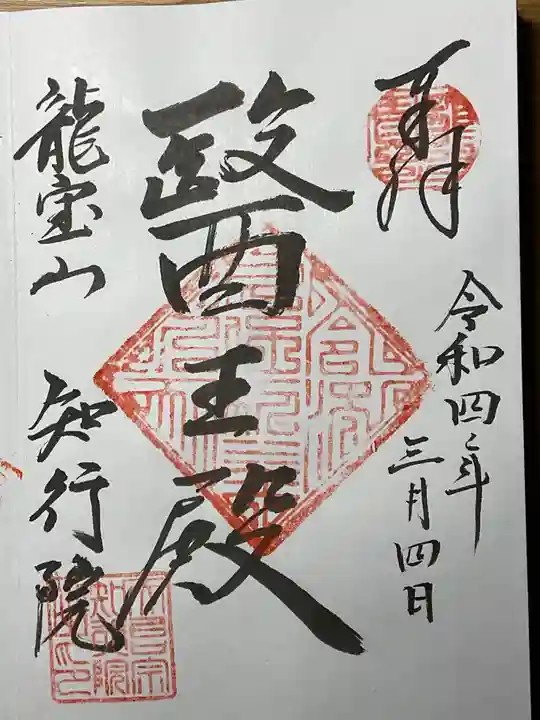 奉拝
令和四年
三月四日
醫王殿
龍宝山 知行院